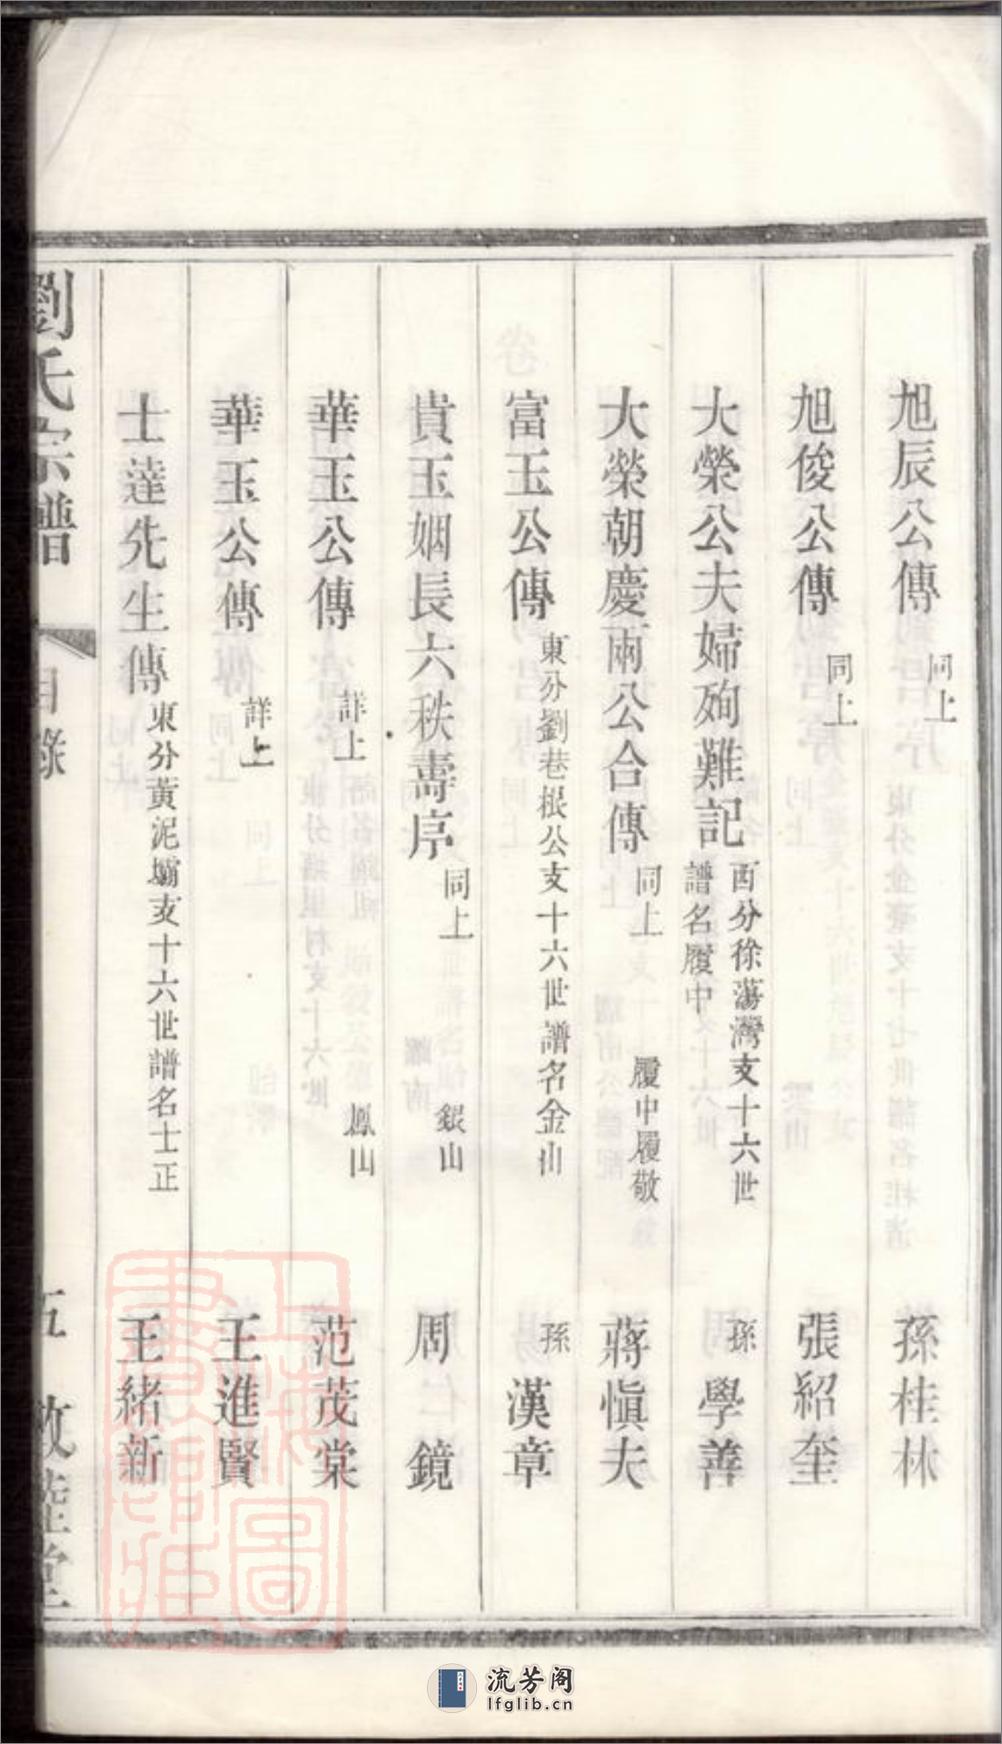 旭辰公傳 同上 孫桂林
旭俊公傳 同上 張紹奎
大榮公夫婦殉難記 西分徐蕩灣支十六世譜名履中 孫 學善
大榮朝慶兩公合傳 同上 履中履敬 蔣愼夫
富玉公傳 東分劉巷根公支十六世譜名金山 孫 漢章
貴玉姻長六秩壽序 同上 銀山 周鏡
華玉公傳 詳上 鳳山 范茂棠
華玉公傳 詳上 王進賢
士達先生傳 東分黃泥壩支十六世譜名士正 王緒新
劉氏宗譜 目錄 五 敦睦堂
上海圖書館藏
流芳阁
lfglib.cn